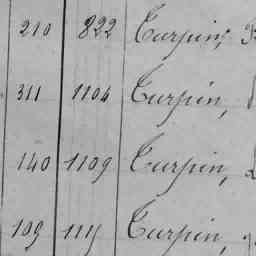 210 822 Turpin,
311 1104 Turpin,
140 1109 Turpin,
109 Turpin,